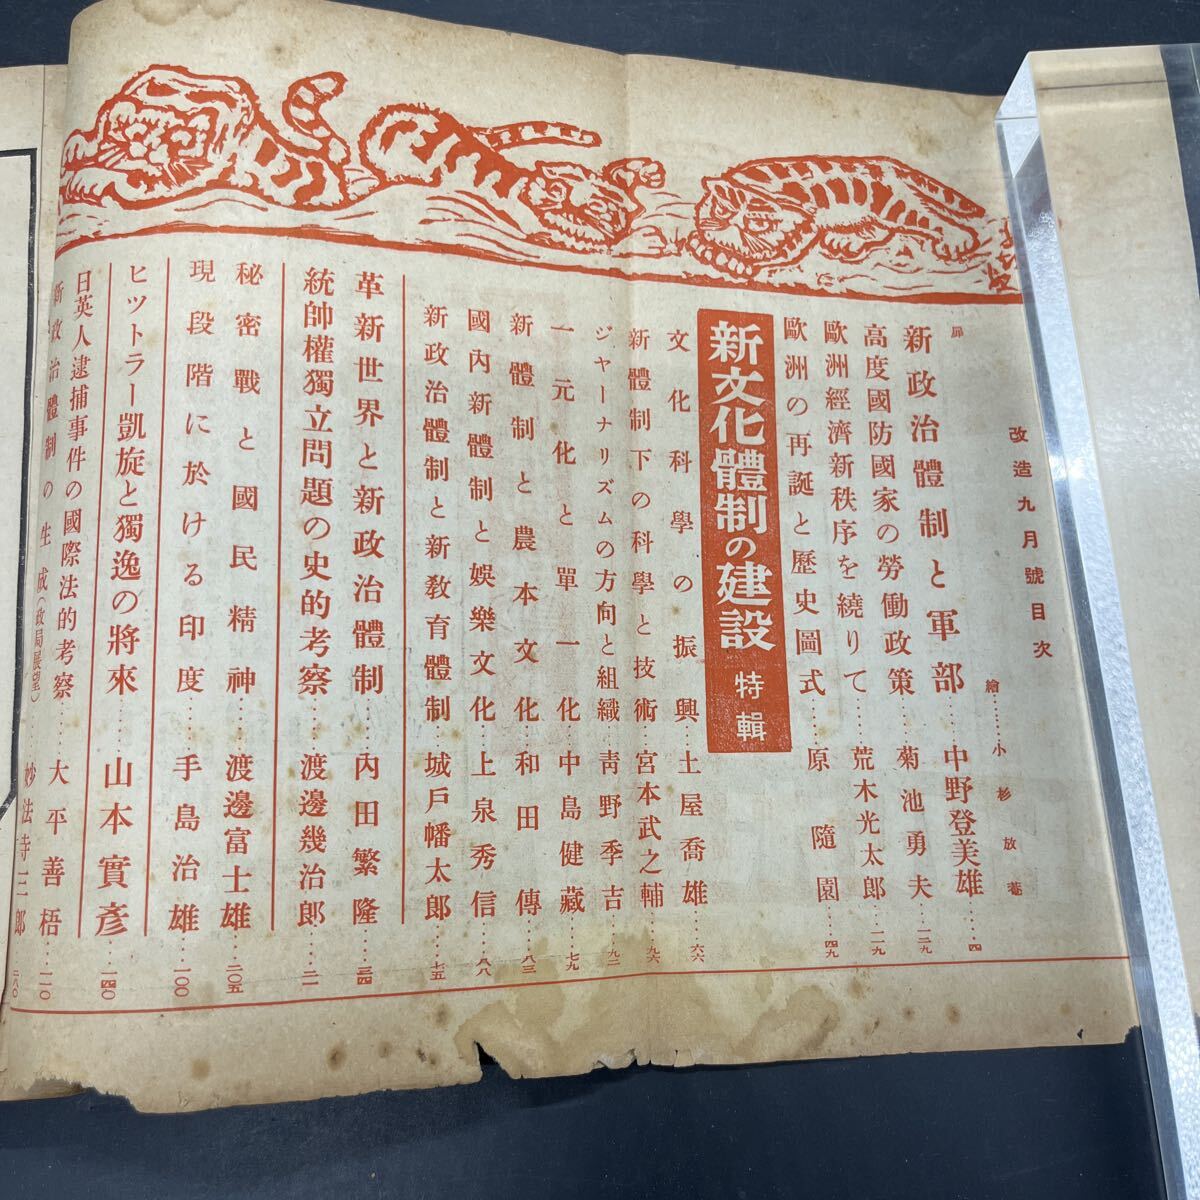 改造九月號目次
扉 繪……小杉放菴
新政治體制と軍部…中野登美雄…四
高度國防國家の勞働政策…菊池勇夫…一二九
歐洲經濟新秩序を繞りて…荒木光太郎…一一九
歐洲の再誕と歷史圖式…原隨園…四九
新文化體制の建設 特輯
文化科學の振興…土屋喬雄…六六
新體制下の科學と技術…宮本武之輔…九六
ジャーナリズムの方向と組織…靑野季吉…九二
一元化と單一化…中島健藏…七九
新體制と農本文化…和田傳…八三
國內新體制と娛樂文化…上泉秀信…八八
新政治體制と新敎育體制…城戶幡太郎…七五
革新世界と新政治體制…內田繁隆…三四
統帥權獨立問題の史的考察…渡邊幾治郎…二一
秘密戰と國民精神…渡邊富士雄…二〇五
現段階に於ける印度…手島治雄…一〇〇
ヒットラー凱旋と獨逸の將來…山本實彥…一四〇
日英人逮捕事件の國際法的考察…大平善梧…二一〇
新政治體制の生成(政局展望)…妙法寺三郎…二八〇